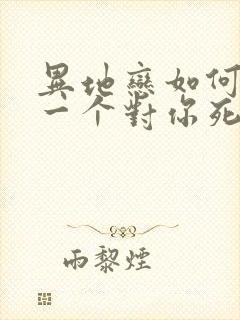 異地戀如何
一个對你死
雨黎煙